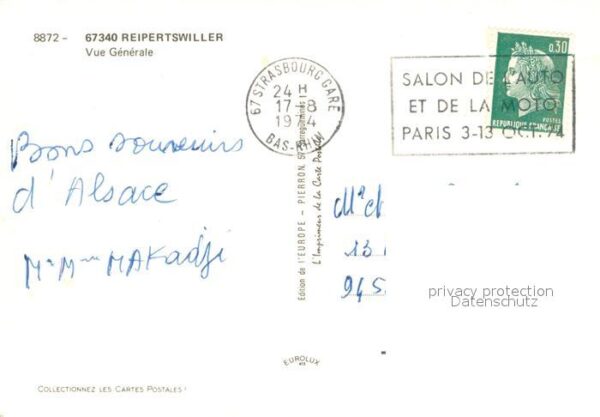 8872 - 67340 REIPERTSWILLER
Vue Générale
67 STRASBOURG GARE
24 H
17-8
1974
BAS-RHIN
0,30
POSTES
REPUBLIQUE FRANÇAISE
SALON DE L'AUTO
ET DE LA MOTO
PARIS 3-13 OCT. 74
Bons souvenirs
d'Alsace
Mr Mme MAKadji
Edition de l'EUROPE - PIERRON, 57
L'Imprimeur de la Carte Postale
13
945
privacy protection
Datenschutz
EUROLUX
COLLECTIONNEZ LES CARTES POSTALES !